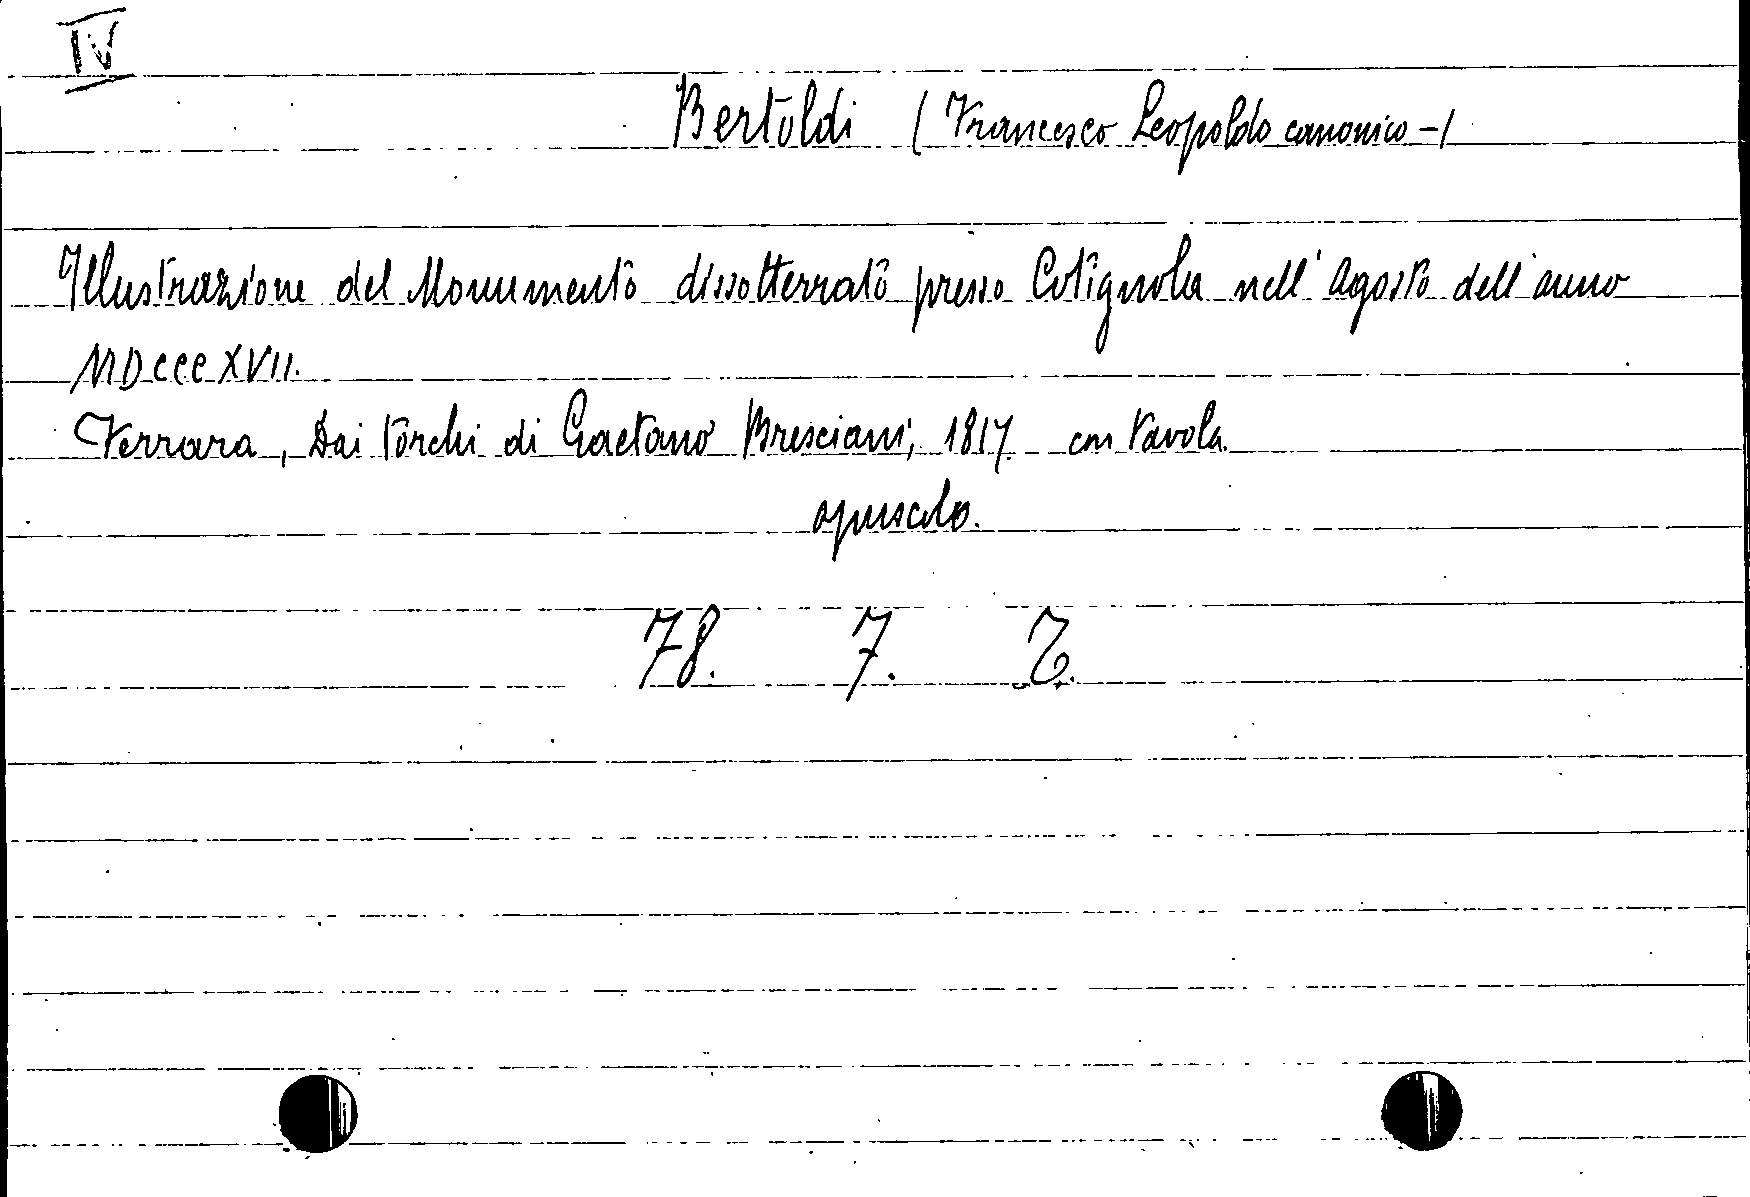 IV
Bertoldi (Francesco Leopoldo canonico -)
Illustrazione del Monumento dissotterrato presso Cotignola nell'agosto dell'anno
MDCCCXVII.
Ferrara, Dai torchi di Gaetano Bresciani, 1817. con tavola.
opuscolo.
78. 7.